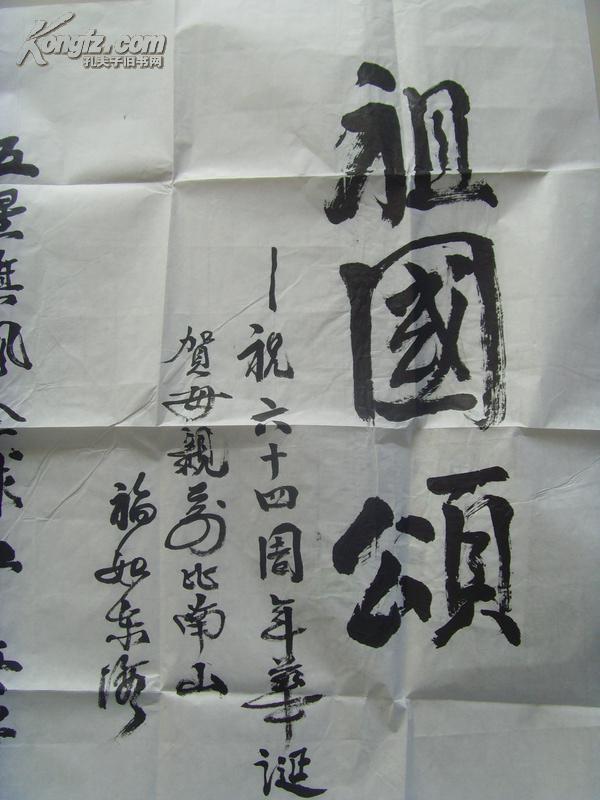 祖國頌
—祝六十四周年華誕
賀母親壽比南山
福如东海
五星旗風全球
Kongfz.com
孔夫子旧书网